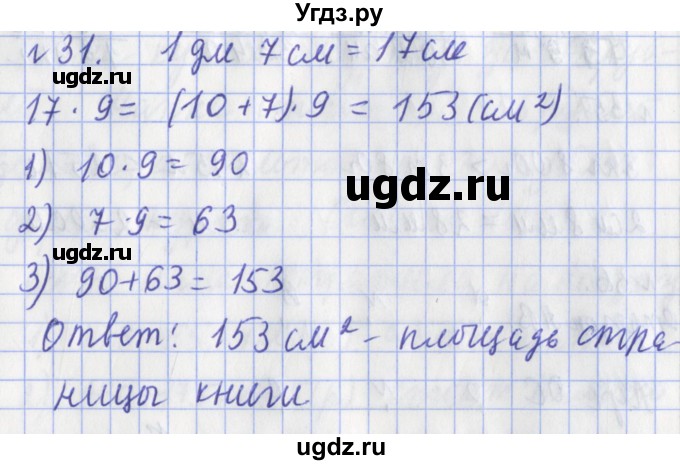 Угдз.ру
№31. 1 дм 7 см = 17 см
gdz.ru
17 · 9 = (10 + 7) · 9 = 153 (см²)
1) 10 · 9 = 90
ugdz.ru
2) 7 · 9 = 63
gdz.ru
3) 90 + 63 = 153
Ответ: 153 см² – площадь стра-
ницы книги
ugdz.ru
ugdz.ru